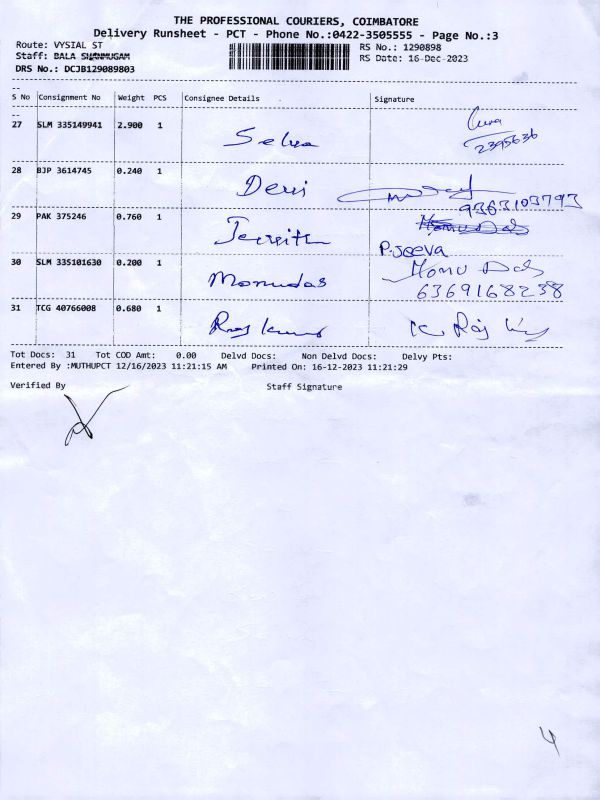 THE PROFESSIONAL COURIERS, COIMBATORE
Delivery Runsheet - PCT - Phone No.:0422-3505555 - Page No.:3
Route: VYSIAL ST
RS No.: 1290898
Staff: BALA SHANMUGAM
RS Date: 16-Dec-2023
DRS No.: DCJB129089803
S No Consignment No Weight PCS Consignee Details Signature
27 SLM 335149941 2.900 1 Selva
2395636
28 BJP 3614745 0.240 1 Devi
9363103793
29 PAK 375246 0.760 1
P.Jeeva
30 SLM 335101630 0.200 1 Monudas Monu Das
6369168238
31 TCG 40766008 0.680 1 Raj Kumar K Raj
Tot Docs: 31 Tot COD Amt: 0.00 Delvd Docs: Non Delvd Docs: Delvy Pts:
Entered By :MUTHUPCT 12/16/2023 11:21:15 AM Printed On: 16-12-2023 11:21:29
Verified By Staff Signature
4